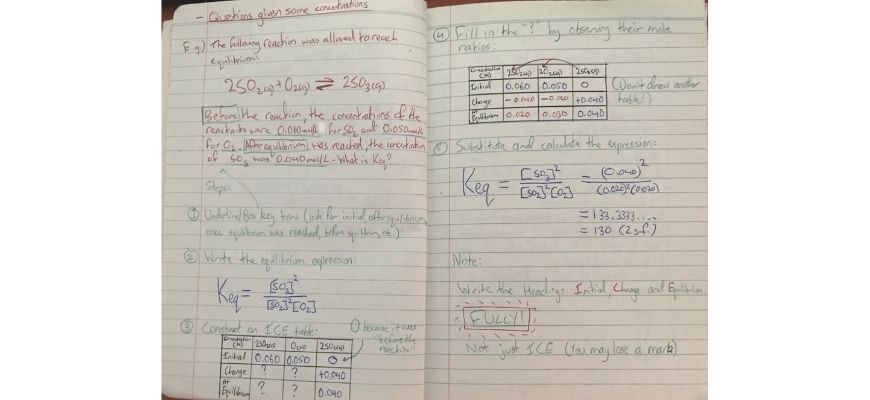 - Questions given some concentrations
E.g) The following reaction was allowed to reach
equilibrium:
2SO₂(g) + O₂(g) ⇌ 2SO₃(g)
Before the reaction, the concentrations of the
reactants were 0.060mol/L for SO₂ and 0.050mol/L
for O₂. After equilibrium was reached, the concentration
of SO₃ was 0.040mol/L. What is Keq?
Steps:
① Underline/Box key terms (look for initial, after equilibrium,
once equilibrium was reached, before equilibrium, etc.)
② Write the equilibrium expression:
Keq = [SO₃]² / [SO₂]²[O₂]
③ Construct an ICE table.
0 because it was
"before the
reaction"
Concentration (M) 2SO₂(g) O₂(g) 2SO₃(g)
Initial 0.060 0.050 0
Change ? ? +0.040
At Equilibrium ? ? 0.040
④ Fill in the "?" by observing their mole
ratios:
Concentration (M) 2SO₂(g) O₂(g) 2SO₃(g)
Initial 0.060 0.050 0
Change -0.040 -0.020 +0.040
At Equilibrium 0.020 0.030 0.040
(Don't draw another
table!)
⑤ Substitute and calculate the expression:
Keq = [SO₃]² / [SO₂]²[O₂] = (0.040)² / (0.020)²(0.030)
= 133.3333....
= 130 (2 s.f.)
Note:
Write the Headings Initial, Change and Equilibrium
FULLY!
Not just ICE (You may lose a mark)